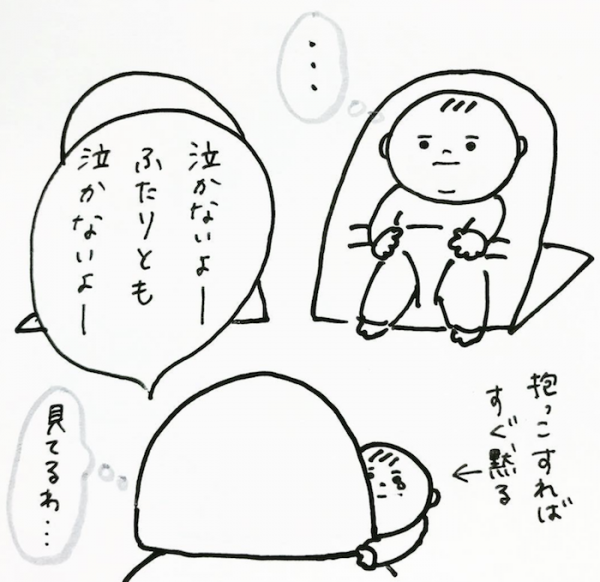 ・・・
泣かないよー
ふたりとも
泣かないよー
抱っこすれば
すぐ、黙る
見てるわ・・・